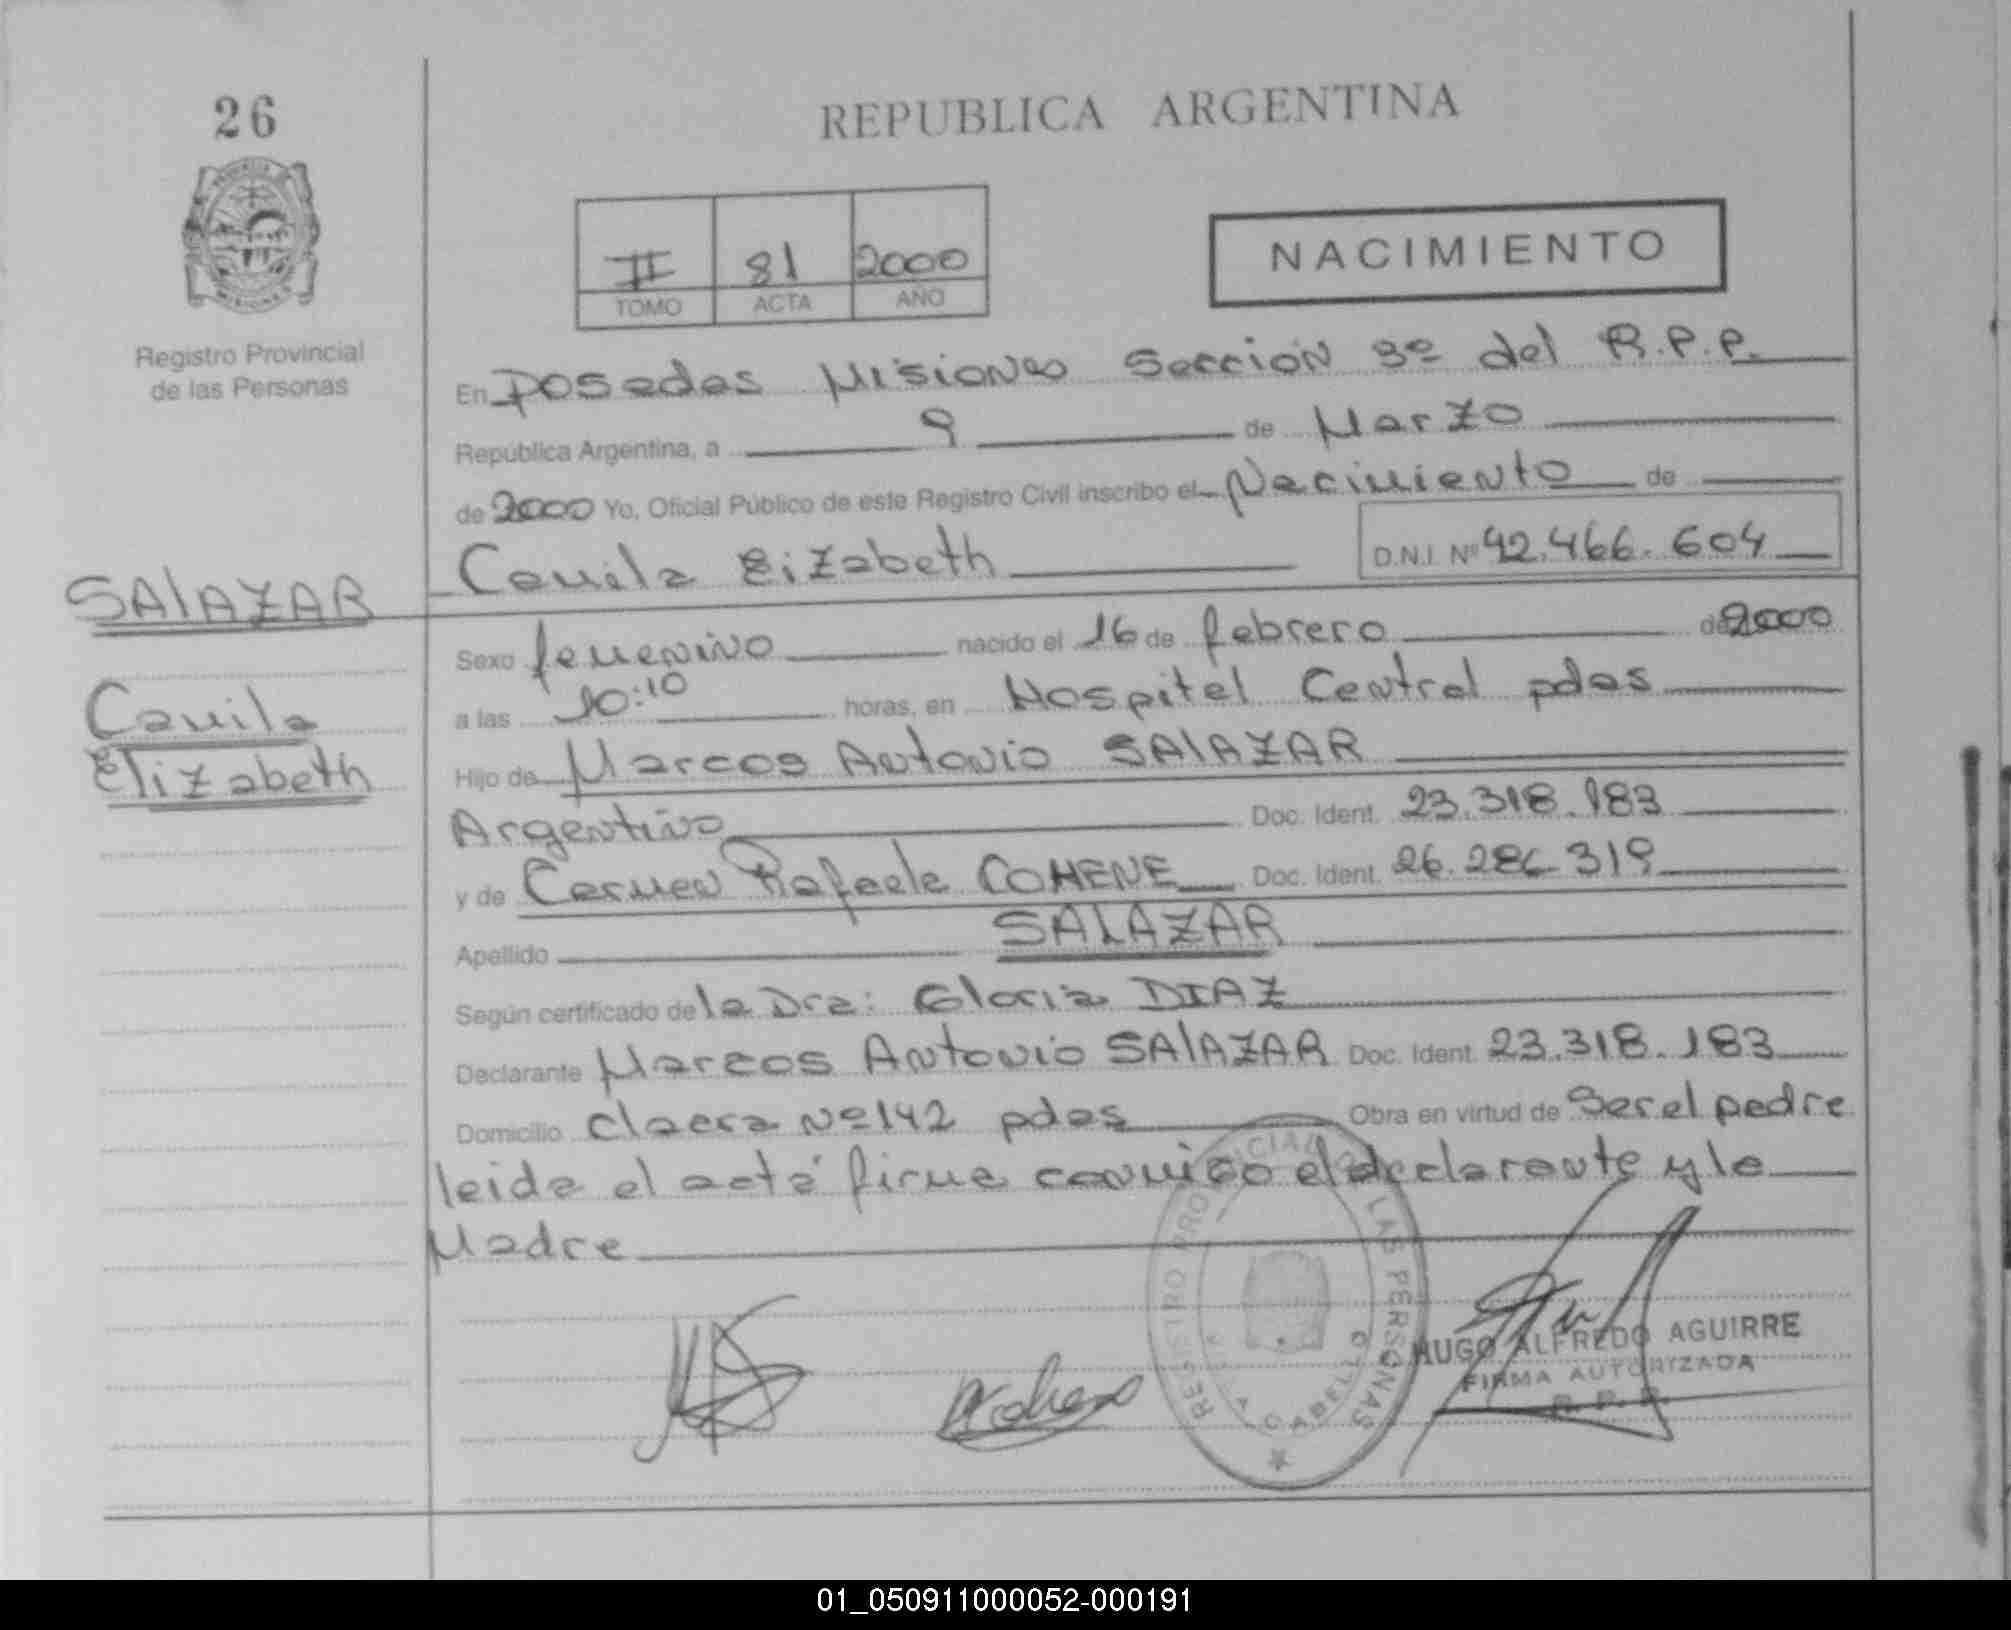 26
REPUBLICA ARGENTINA
II 81 2000
TOMO ACTA AÑO
NACIMIENTO
Registro Provincial
de las Personas
En Posadas Misiones Sección 3º del R.P.P.
República Argentina, a 9 de Marzo
de 2000 Yo, Oficial Público de este Registro Civil inscribo el Nacimiento de
Camila Elizabeth D.N.I. Nº 42.466.604
SALAZAR
Camila
Elizabeth
Sexo femenino nacido el 16 de febrero de 2000
a las 10:10 horas, en Hospital Central pdas
Hijo de Marcos Antonio SALAZAR
Argentino Doc. Ident. 23.318.183
y de Carmen Rafaela COHENE Doc. Ident. 26.286.319
Apellido SALAZAR
Según certificado de la Dra: Gloria DIAZ
Declarante Marcos Antonio SALAZAR Doc. Ident. 23.318.183
Domicilio Nº 142 pdas Obra en virtud de Ser el padre
leida el acta firma conmigo el declarante y la
Madre
REGISTRO PROVINCIAL DE LAS PERSONAS
HUGO ALFREDO AGUIRRE
FIRMA AUTORIZADA
R. P. P.
01_050911000052-000191